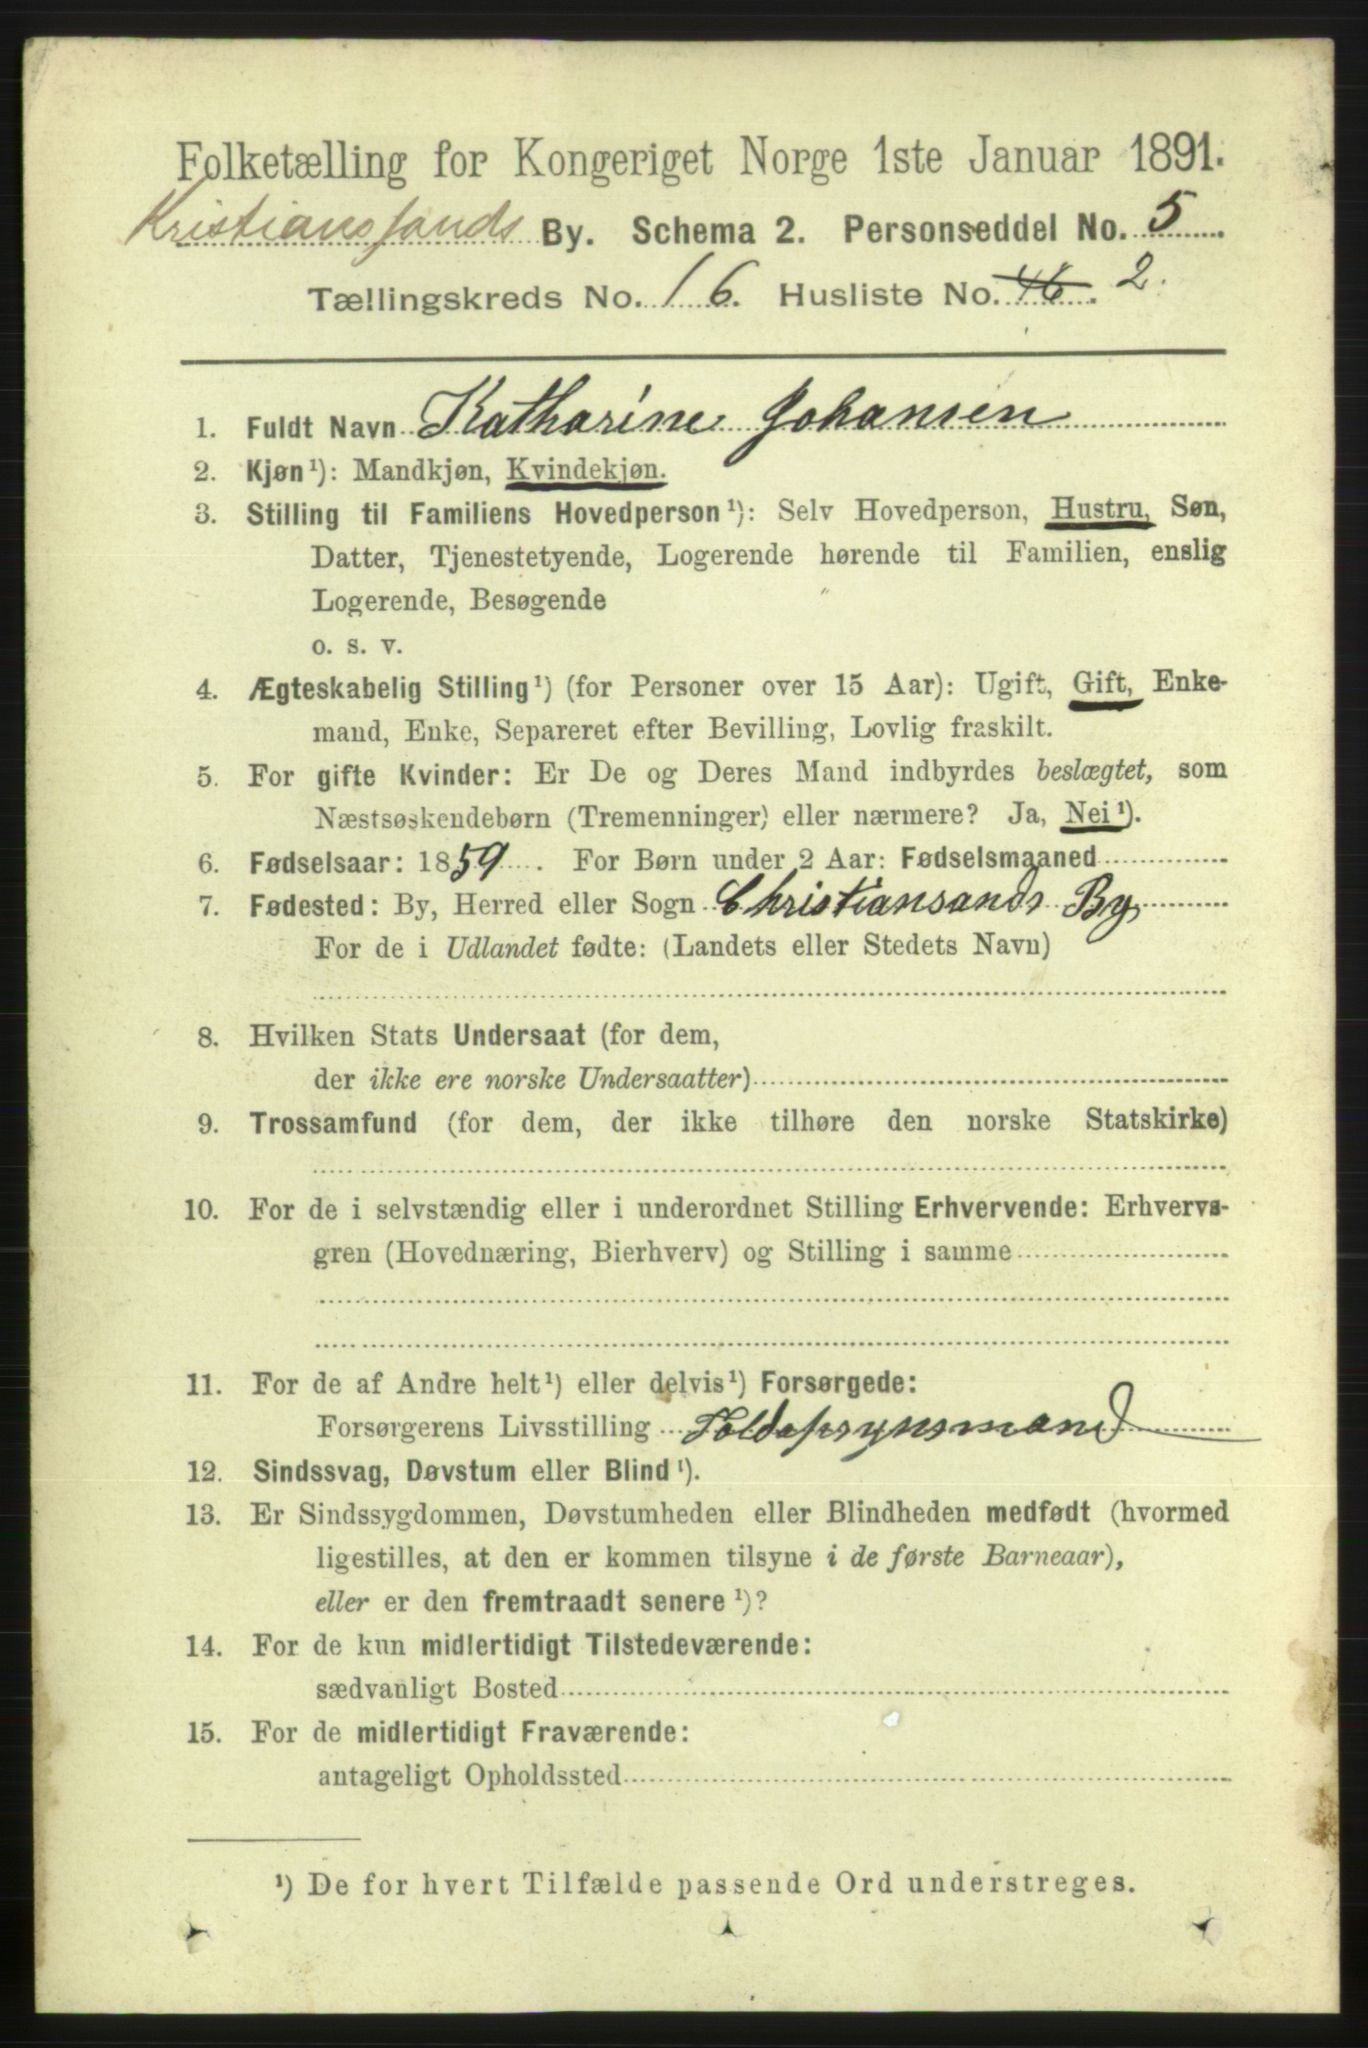 Folketælling for Kongeriget Norge 1ste Januar 1891.
Kristianssands By. Schema 2. Personseddel No. 5
Tællingskreds No. 16. Husliste No. 16. 2.
1. Fuldt Navn Katharine Johansen
2. Kjøn¹): Mandkjøn, Kvindekjøn.
3. Stilling til Familiens Hovedperson¹): Selv Hovedperson, Hustru, Søn,
Datter, Tjenestetyende, Logerende hørende til Familien, enslig
Logerende, Besøgende
o. s. v.
4. Ægteskabelig Stilling¹) (for Personer over 15 Aar): Ugift, Gift, Enke-
mand, Enke, Separeret efter Bevilling, Lovlig fraskilt.
5. For gifte Kvinder: Er De og Deres Mand indbyrdes beslægtet, som
Næstsøskendebørn (Tremenninger) eller nærmere? Ja, Nei¹).
6. Fødselsaar: 1859. For Børn under 2 Aar: Fødselsmaaned
7. Fødested: By, Herred eller Sogn Christiansands By
For de i Udlandet fødte: (Landets eller Stedets Navn)
8. Hvilken Stats Undersaat (for dem,
der ikke ere norske Undersaatter)
9. Trossamfund (for dem, der ikke tilhøre den norske Statskirke)
10. For de i selvstændig eller i underordnet Stilling Erhvervende: Erhvervs-
gren (Hovednæring, Bierhverv) og Stilling i samme
11. For de af Andre helt¹) eller delvis¹) Forsørgede:
Forsørgerens Livsstilling Toldopsynsmand
12. Sindssvag, Døvstum eller Blind¹).
13. Er Sindssygdommen, Døvstumheden eller Blindheden medfødt (hvormed
ligestilles, at den er kommen tilsyne i de første Barneaar),
eller er den fremtraadt senere¹)?
14. For de kun midlertidigt Tilstedeværende:
sædvanligt Bosted
15. For de midlertidigt Fraværende:
antageligt Opholdssted
¹) De for hvert Tilfælde passende Ord understreges.